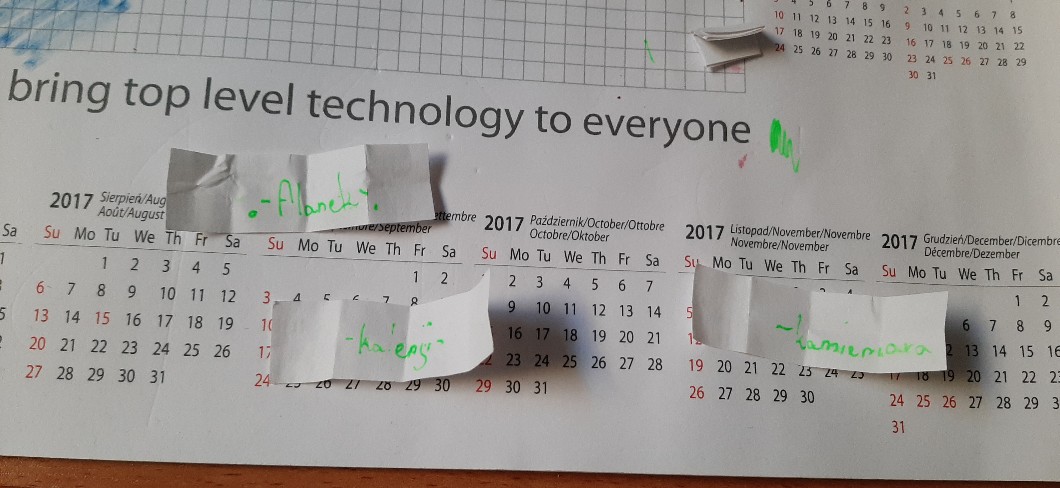 10 11 12 13 14 15 16
17 18 19 20 21 22 23
24 25 26 27 28 29 30
2 3 4 5 6 7 8
9 10 11 12 13 14 15
16 17 18 19 20 21 22
23 24 25 26 27 28 29
30 31
bring top level technology to everyone
2017 Sierpień/Aug
Août/August
Sa
Su Mo Tu We Th Fr Sa
1 2 3 4 5
6 7 8 9 10 11 12
13 14 15 16 17 18 19
20 21 22 23 24 25 26
27 28 29 30 31
ettembre
/September
Su Mo Tu We Th Fr Sa
1 2
3 4 5 6 7 8
10
17
24 25 26 27 28 29 30
2017 Październik/October/Ottobre
Octobre/Oktober
Su Mo Tu We Th Fr Sa
2 3 4 5 6 7
9 10 11 12 13 14
16 17 18 19 20 21
23 24 25 26 27 28
29 30 31
2017 Listopad/November/Novembre
Novembre/November
Su Mo Tu We Th Fr Sa
5
19 20 21 22 23 24 25
26 27 28 29 30
2017 Grudzień/December/Dicembre
Décembre/Dezember
Su Mo Tu We Th Fr
1 2
6 7 8 9
13 14 15 16
17 18 19 20 21 22
24 25 26 27 28 29
31